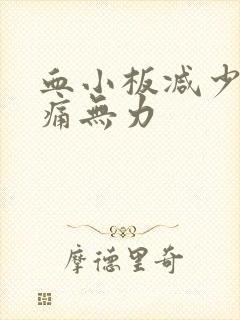 血小板减少
痛無力
摩德里奇